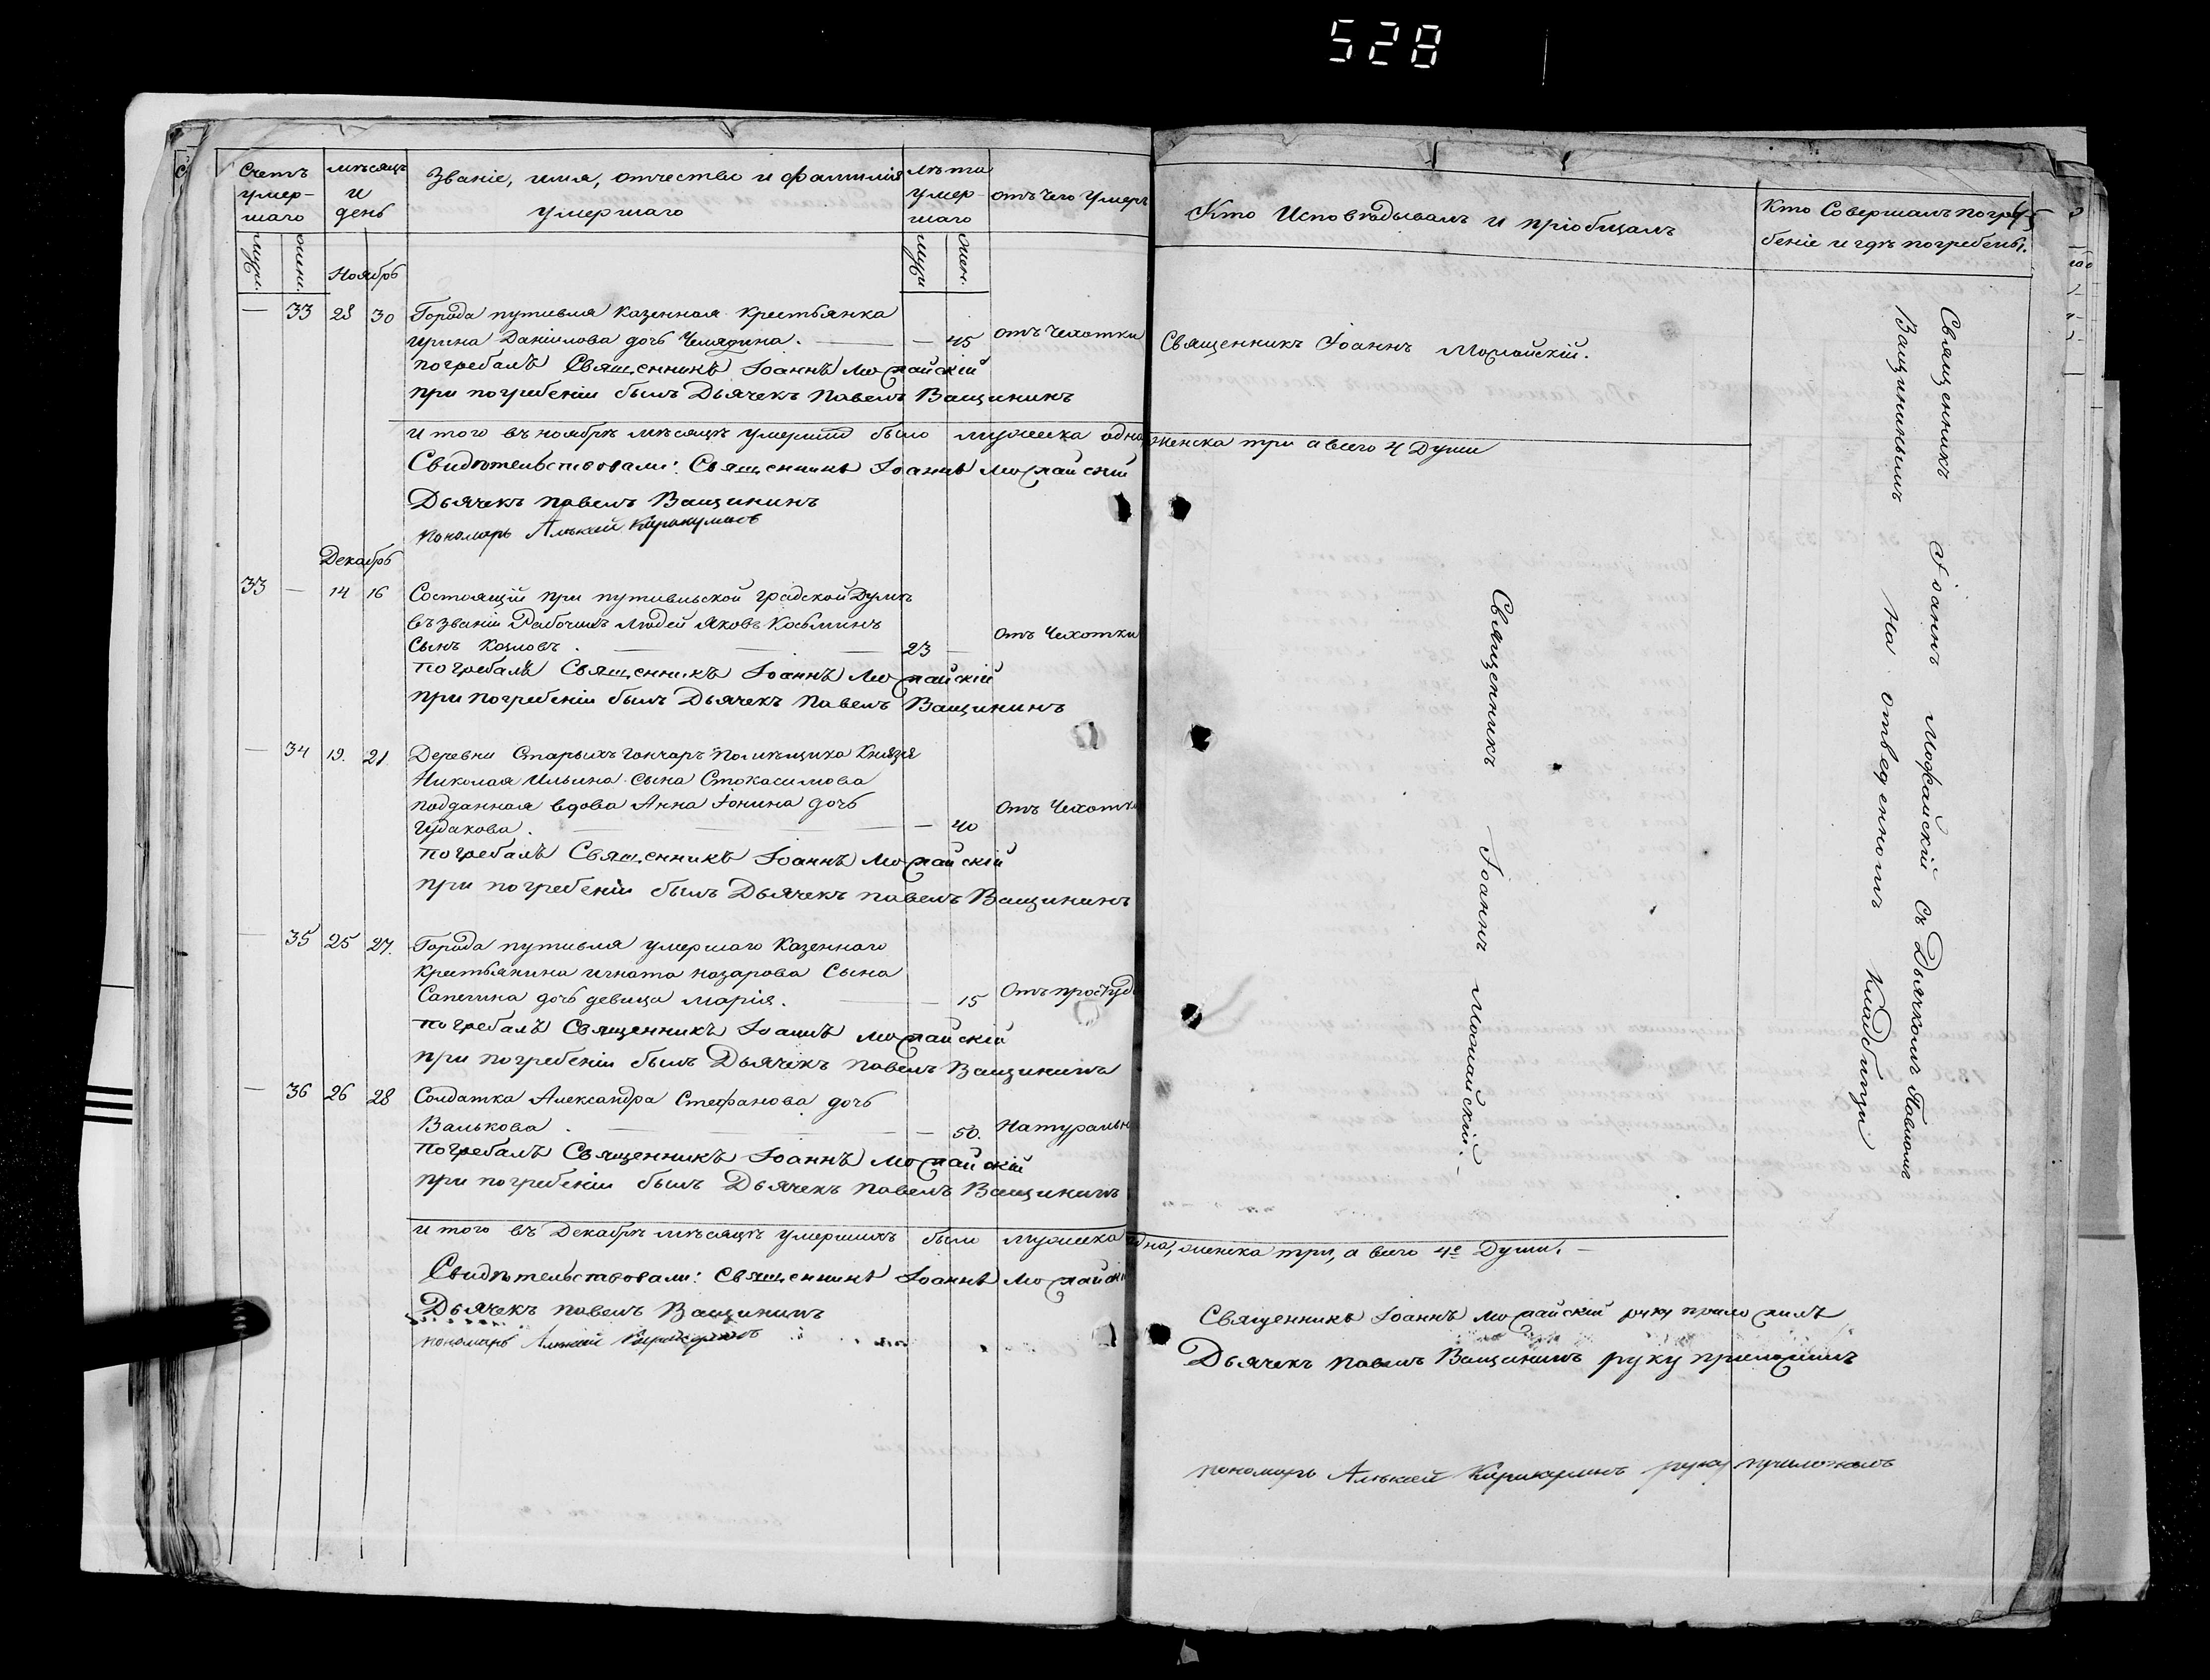 528
Счетъ умер-шаго
мужс.
женс.
мѣсяцъ и день
Званіе, имя, отчество и фамилія умершаго
Лѣта умер-шаго
муж
жен.
отъ чего умеръ
Кто Исповѣдывалъ и пріобщалъ
Кто Совершалъ погре-
беніе и гдѣ погребены.
Ноябрь
— 33 28 30 Города путивля казенная крестьянка
ирина Даніилова дочь Челядина. — 45 отъ чехотки
Священникъ Іоаннъ Можайскій.
погребалъ Священникъ Іоаннъ Можайскій
при погребеніи былъ Дьячекъ Павелъ Ващининъ
итого въ ноябрѣ мѣсяцѣ умершихъ было мужеска одна женска три а всего 4 Души
Свидѣтельствовали: Священникъ Іоаннъ Можайскій
Дьячекъ павелъ Ващининъ
пономарь
Декабрь
33 — 14 16 Состоящій при путивльской градской Думѣ
въ званіи Рабочихъ людей Яковъ Косьминъ
Сынъ Козловъ. 23 — Отъ Чехотки
погребалъ Священникъ Іоаннъ Можайскій
при погребеніи былъ Дьячекъ Павелъ Ващининъ
— 34 19. 21 Деревни Старыхъ Гончаръ Помѣщика Князя
Николая Ильина Сына
подданная вдова Анна Іонина дочь
Гудакова. — 40 Отъ Чехотки
погребалъ Священникъ Іоаннъ Можайскій
при погребеніи былъ Дьячекъ павелъ Ващининъ
— 35 25 27. Города путивля умершаго Казеннаго
крестьянина игната назарова Сына
Сапегина дочь девица марія. — 15 Отъ простуды
погребалъ Священникъ Іоаннъ Можайскій
при погребеніи былъ Дьячекъ павелъ Ващининъ
— 36 26 28 Солдатка Александра Стефанова дочь
Валькова. — 50. Натурально
погребалъ Священникъ Іоаннъ Можайскій
при погребеніи былъ Дьячекъ павелъ Ващининъ
итого въ Декабрѣ мѣсяцѣ умершихъ было мужеска одна, женска три, а всего 4е Души.
Свидѣтельствовали: Священникъ Іоаннъ Можайскій
Дьячекъ павелъ Ващининъ
пономарь
Священникъ Іоаннъ Можайскій.
Священникъ Іоаннъ Можайскій Съ Дьячкомъ Павломъ
Ващининымъ На отведенномъ Кладбищи
Священникъ Іоаннъ Можайскій руку приложилъ
Дьячекъ павелъ Ващининъ руку приложилъ
пономарь руку приложилъ